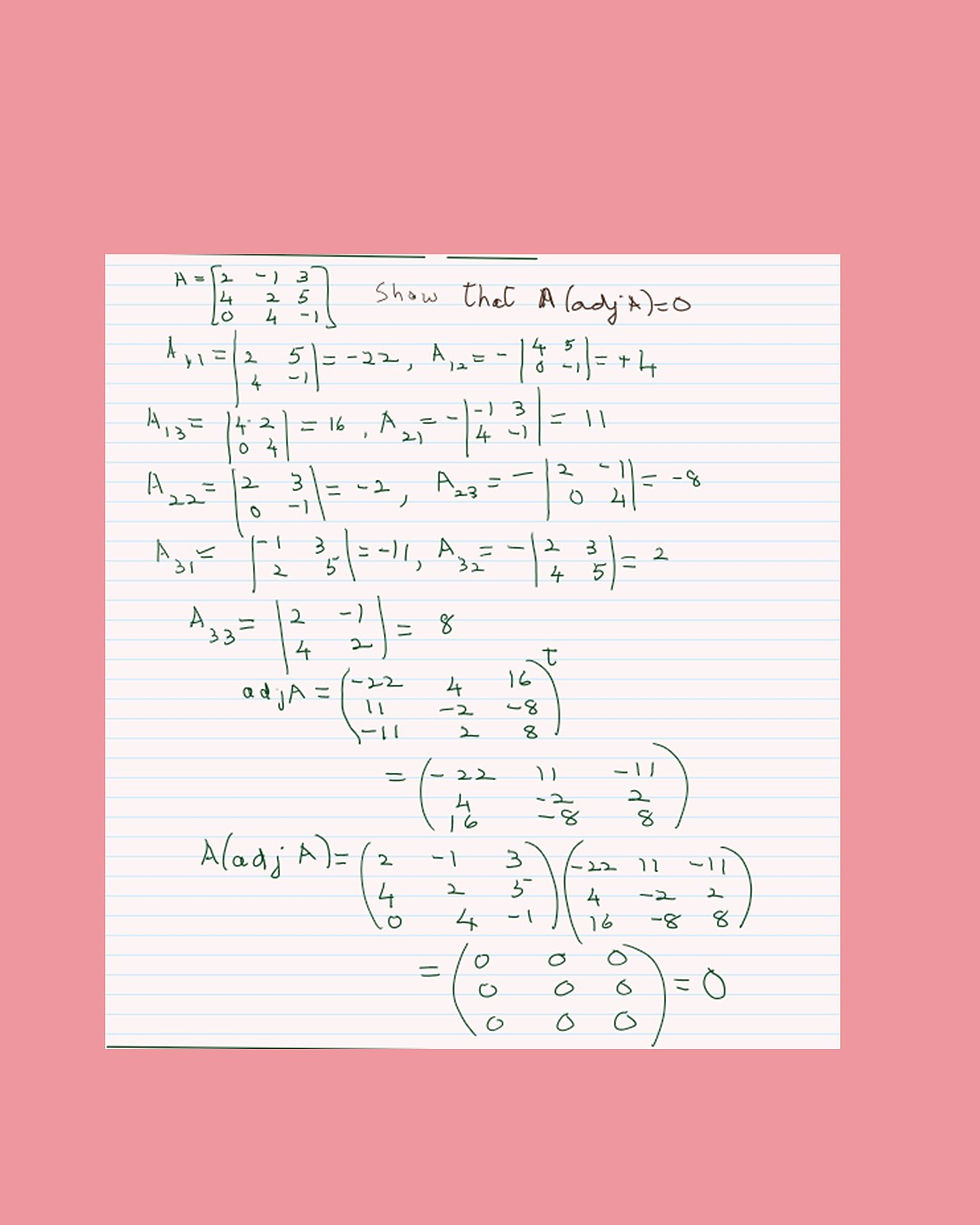 A = [2 -1 3
4 2 5
0 4 -1] Show that A(adjA)=0
A11 = |2 5
4 -1| = -22, A12 = - |4 5
0 -1| = +4
A13 = |4 2
0 4| = 16, A21 = - |-1 3
4 -1| = 11
A22 = |2 3
0 -1| = -2, A23 = - |2 -1
0 4| = -8
A31 = |-1 3
2 5| = -11, A32 = - |2 3
4 5| = 2
A33 = |2 -1
4 2| = 8
adjA = (-22 4 16
11 -2 -8
-11 2 8)t
= (-22 11 -11
4 -2 2
16 -8 8)
A(adj A) = (2 -1 3
4 2 5
0 4 -1) (-22 11 -11
4 -2 2
16 -8 8)
= (0 0 0
0 0 0
0 0 0) = 0